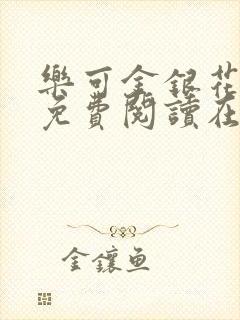 樂可金銀花
免費閱讀在
金鑲魚